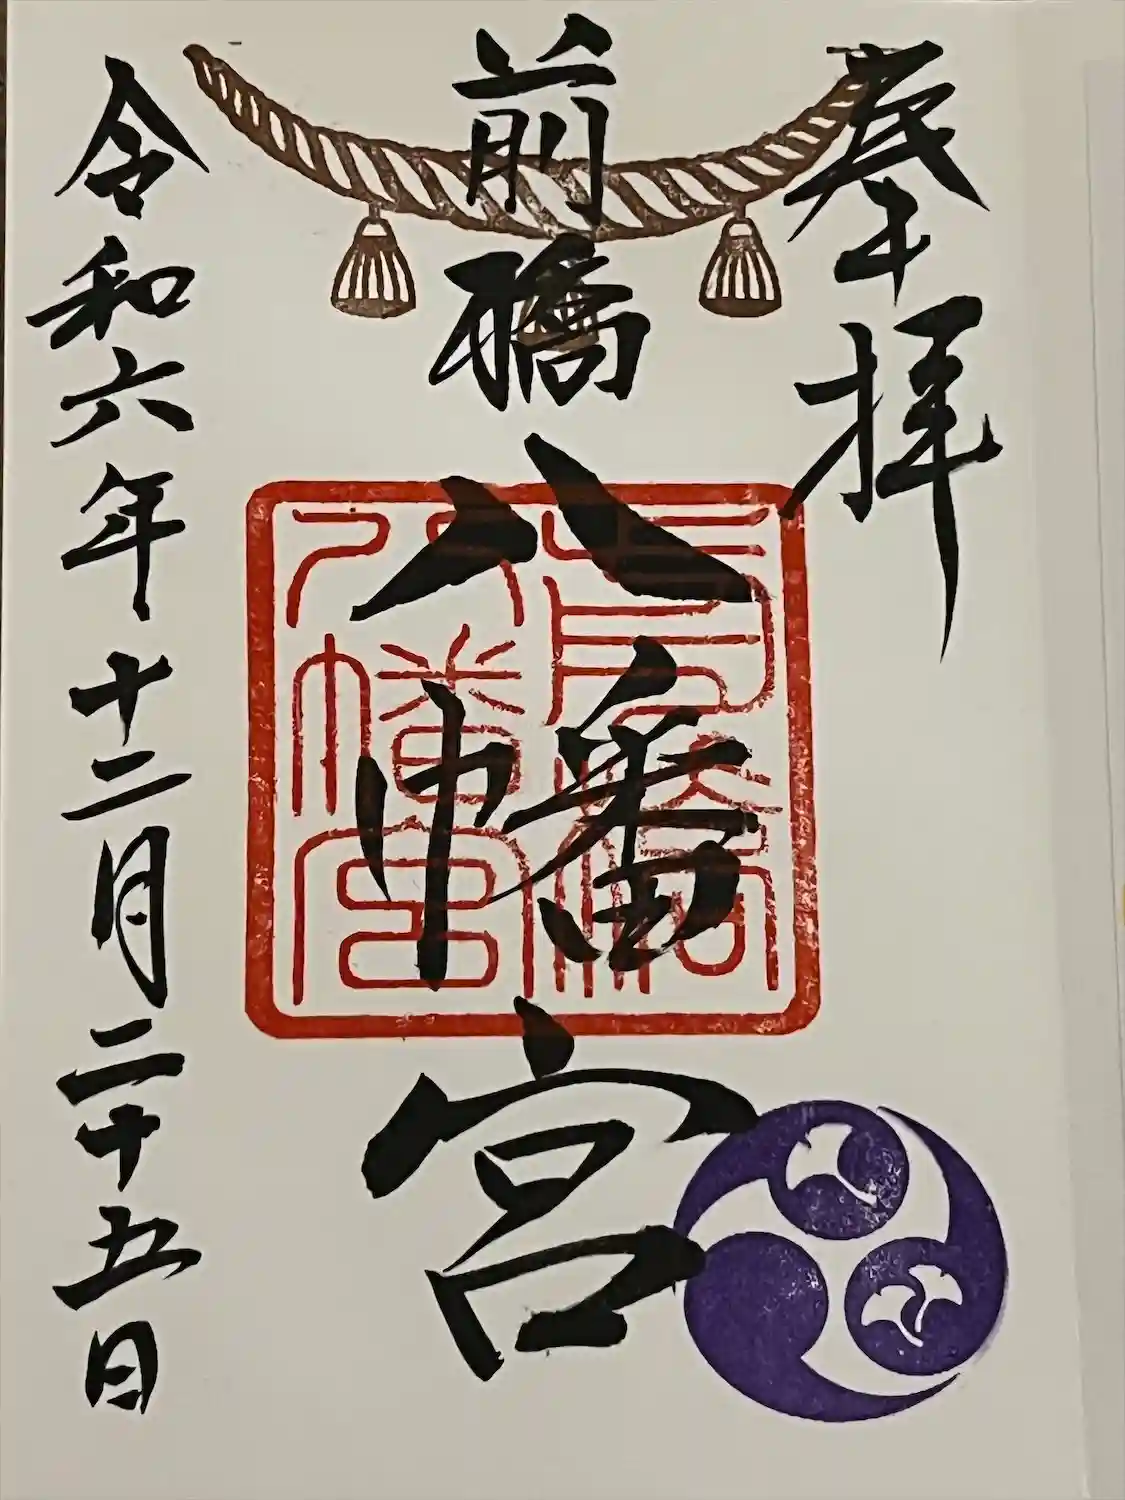 奉拝
前橋
八幡宮
前橋
八幡宮
令和六年十二月二十五日